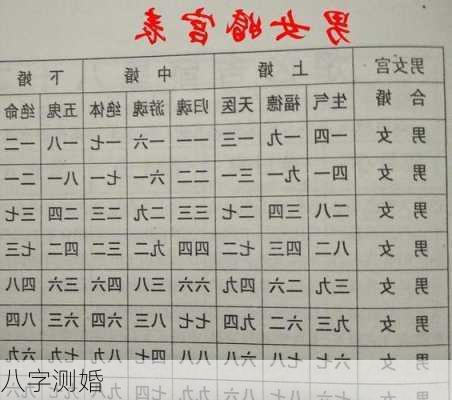 男女婚宫表
男女宫 上婚 中婚 下婚
合婚 生气 福德 天医 归魂 游魂 绝体 五鬼 绝命
男女 一四 一九 一三 一一 一六 一七 一八 一二
男女 四一 九一 三一 二二 六一 七一 八一 二一
男女 二八 三四 二七 三三 二九 二三 二四 三七
男女 八二 四三 七二 四四 九二 三二 四二 七三
男女 三九 二六 四九 六六 三八 四六 三六 四八
男女 九三 六二 九四 七七 八三 六四 六三 八四
男女 六七 七八 六八 八八 四七 八九 七九 六九
男女 七六 八七 八六 九九 七四
八字测婚